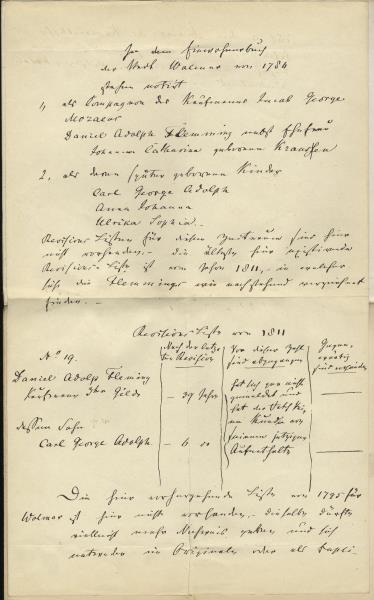 In dem Einwohnerbuch
der Stadt Wolmar von 1784
stehen notirt
1, als Compagnon des Kaufmanns Jacob George
Daniel Adolph Flemming nebst Ehefrau
Johanna Catharina geborene
2, als deren später geborene Kinder
Carl George Adolph
Anna Johanna
Ulrika Sophia. –
Revisions Listen für diesen Zeitraum sind hier
nicht vorhanden, – die älteste hier existirende
Revisions Liste ist vom Jahre 1811, – in welcher
sich die Flemmings wie nachstehend verzeichnet
finden. –
Revisions Liste von 1811
No 19.
Nach der letzten Revision
Vor dieser Zeit sind abgegangen
Gegenwärtig sind vorhanden
Daniel Adolph Flemming
Kaufmann 3ter Gilde
– 39 Jahr
hat sich gar nicht
gemeldet und
hat die Stadt keine
Kunde von
seinem jetzigen
Aufenthalte
dessen Sohn
Carl George Adolph – 6
Die hier vorhergehende Liste von 1795 für
Wolmar ist hier nicht vorhanden, – dieselbe dürfte
vielleicht mehr Nachweis geben und sich
entweder im Originale oder als Dupli-